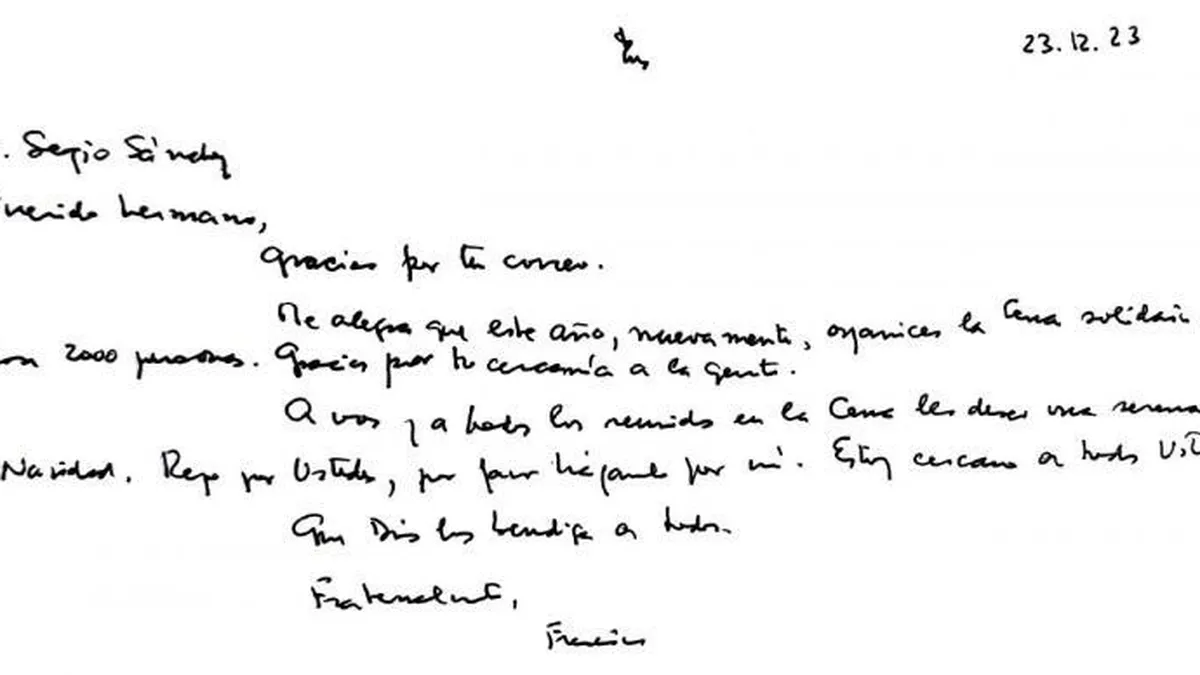 23.12.23
. Sergio Sánchez
uerido hermano,
Gracias por tu correo.
Me alegra que este año, nuevamente, organices la Cena solidari
2000 personas. Gracias por tu cercanía a la gente.
A vos y a todos los reunidos en la Cena les deseo una serena
Navidad. Rezo por Ustedes, por favor háganlo por mí. Estoy cercano a todos Ust
Que Dios los bendiga a todos.
Fraternalmente,
Francisco